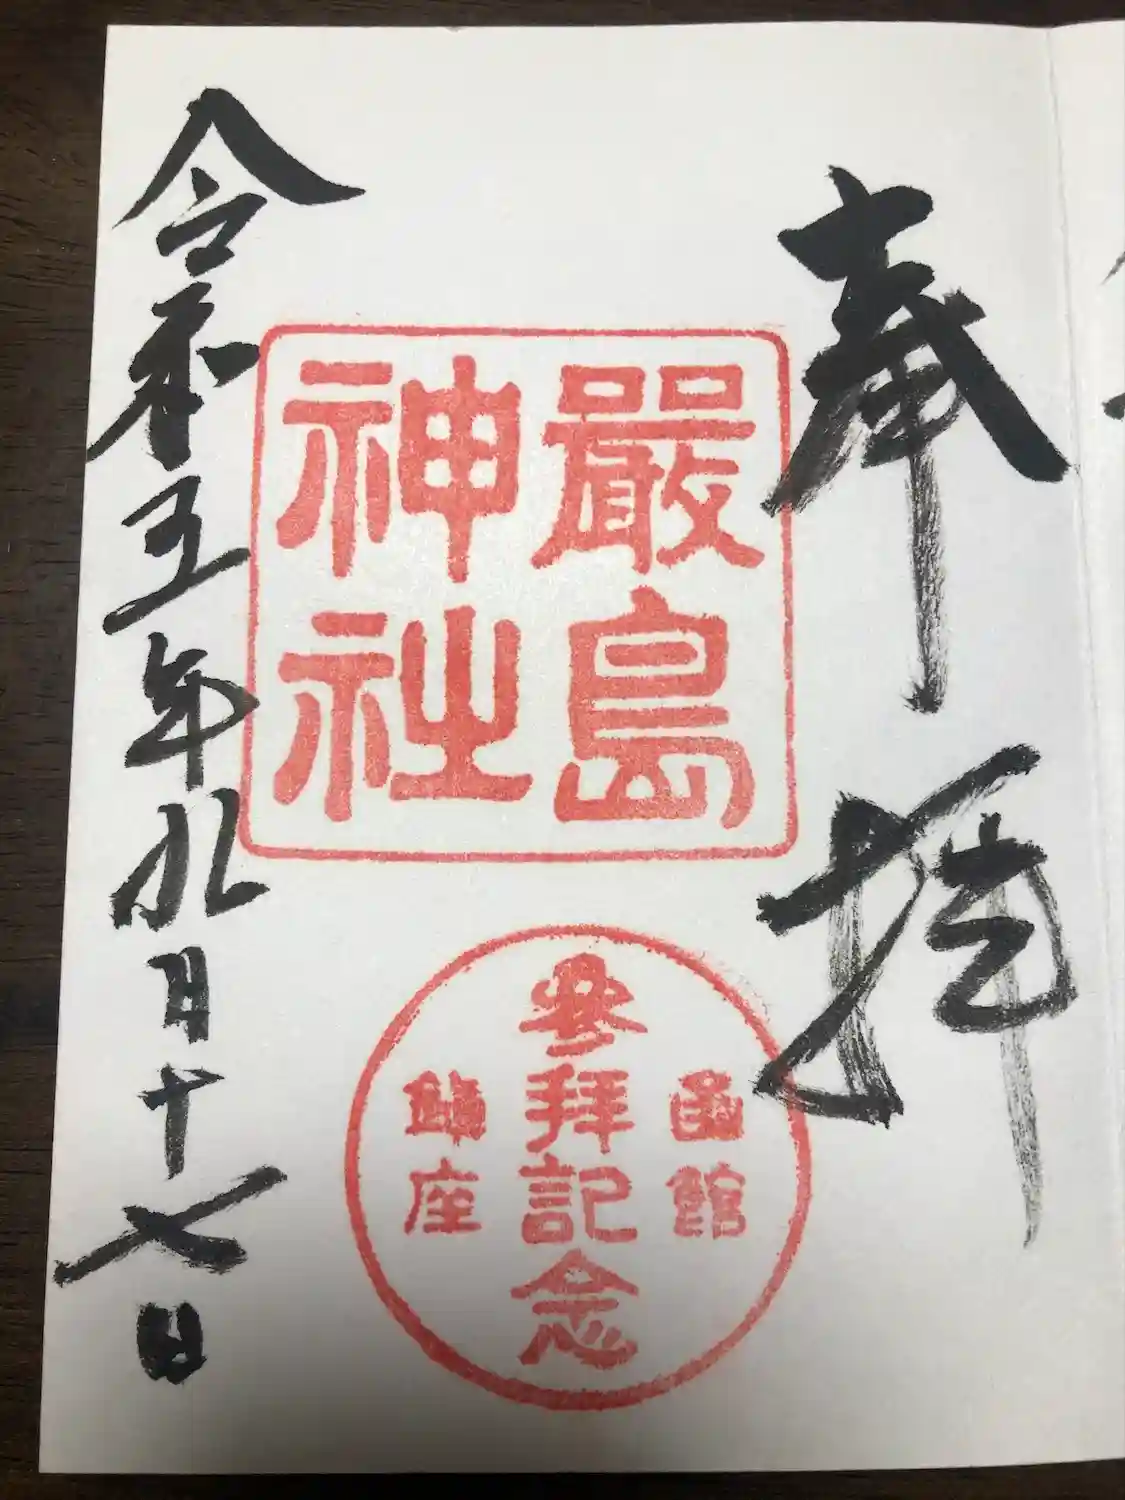 奉拝
嚴島
神社
函館
參拜記念
鎮座
令和五年九月十七日